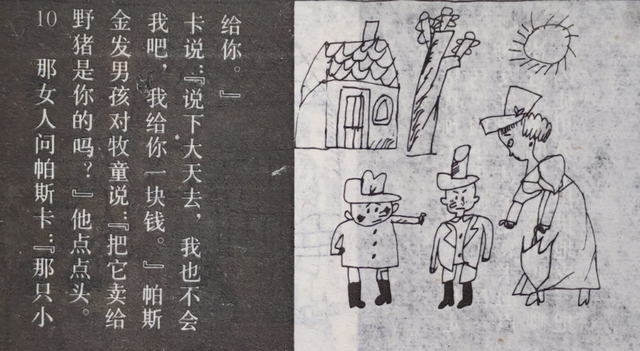 10 那女人问帕斯卡:『那只小
野猪是你的吗?』他点点头。
金发男孩对牧童说:『把它卖给
我吧,我给你一块钱。』帕斯
卡说:『说下大天去,我也不会
给你。』